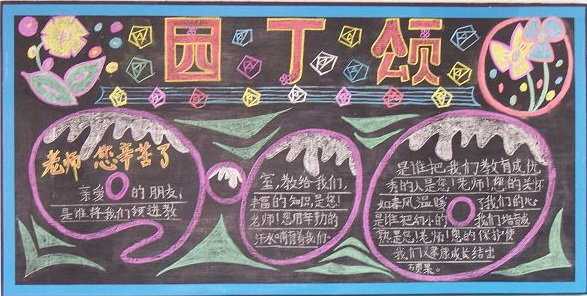 园丁颂
老师 您辛苦了
亲爱的朋友,
是谁将我们领进教
室,教给我们,
丰富的知识,是您!
老师!您用辛勤的
汗水哺育着我们。
是谁把我们教育成优
秀的人是您!老师!您的关怀
如春风温暖了我们的心
是谁把幼小的我们培育成
就是您!老师!您的保护使
我们健康成长结出
硕果。